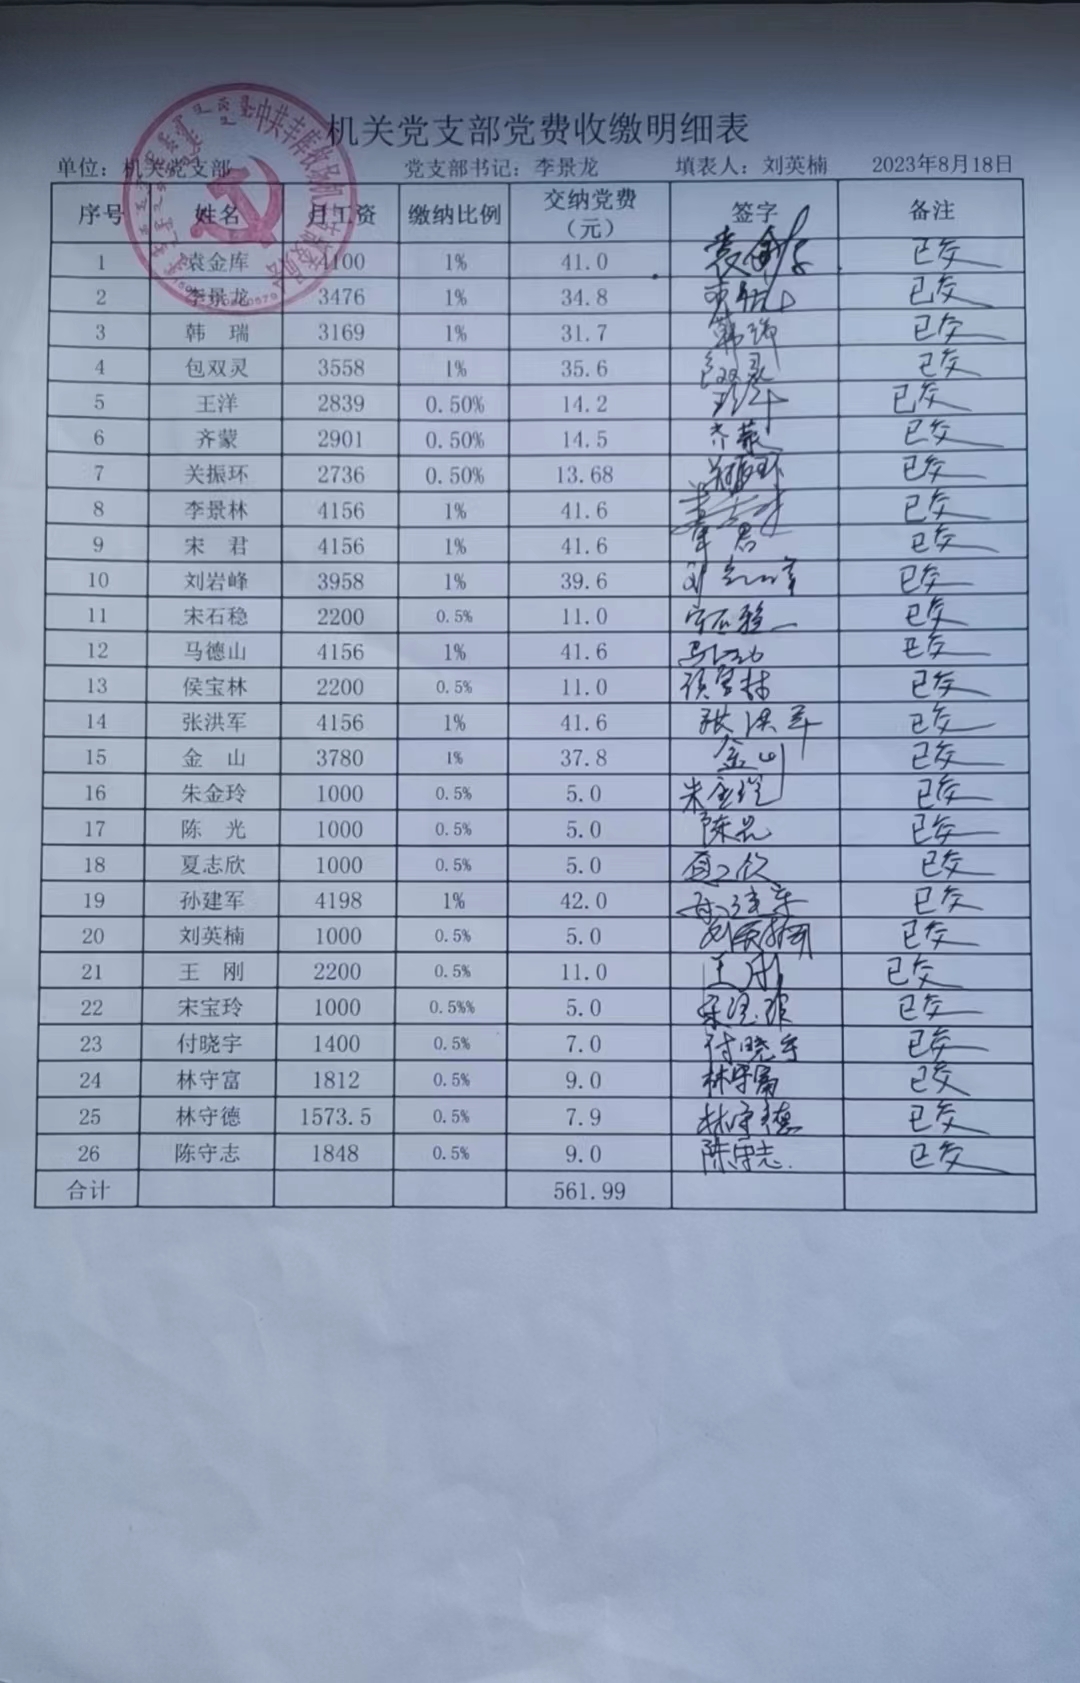 机关党支部党费收缴明细表
单位：机关党支部 党支部书记：李景龙 填表人：刘英楠 2023年8月18日
序号 姓名 月工资 缴纳比例 交纳党费（元） 签字 备注
1 袁金库 4100 1% 41.0 袁金库 已交
2 李景龙 3476 1% 34.8 已交
3 韩 瑞 3169 1% 31.7 韩瑞 已交
4 包双灵 3558 1% 35.6 包双灵 已交
5 王洋 2839 0.50% 14.2 王洋 已交
6 齐蒙 2901 0.50% 14.5 齐蒙 已交
7 关振环 2736 0.50% 13.68 关振环 已交
8 李景林 4156 1% 41.6 已交
9 宋 君 4156 1% 41.6 宋君 已交
10 刘岩峰 3958 1% 39.6 刘岩峰 已交
11 宋石稳 2200 0.5% 11.0 宋石稳 已交
12 马德山 4156 1% 41.6 马德山 已交
13 侯宝林 2200 0.5% 11.0 侯宝林 已交
14 张洪军 4156 1% 41.6 张洪军 已交
15 金 山 3780 1% 37.8 金山 已交
16 朱金玲 1000 0.5% 5.0 朱金玲 已交
17 陈 光 1000 0.5% 5.0 陈光 已交
18 夏志欣 1000 0.5% 5.0 夏志欣 已交
19 孙建军 4198 1% 42.0 孙建军 已交
20 刘英楠 1000 0.5% 5.0 刘英楠 已交
21 王 刚 2200 0.5% 11.0 王刚 已交
22 宋宝玲 1000 0.5%% 5.0 宋宝玲 已交
23 付晓宇 1400 0.5% 7.0 付晓宇 已交
24 林守富 1812 0.5% 9.0 林守富 已交
25 林守德 1573.5 0.5% 7.9 林守德 已交
26 陈守志 1848 0.5% 9.0 陈守志 已交
合计 561.99